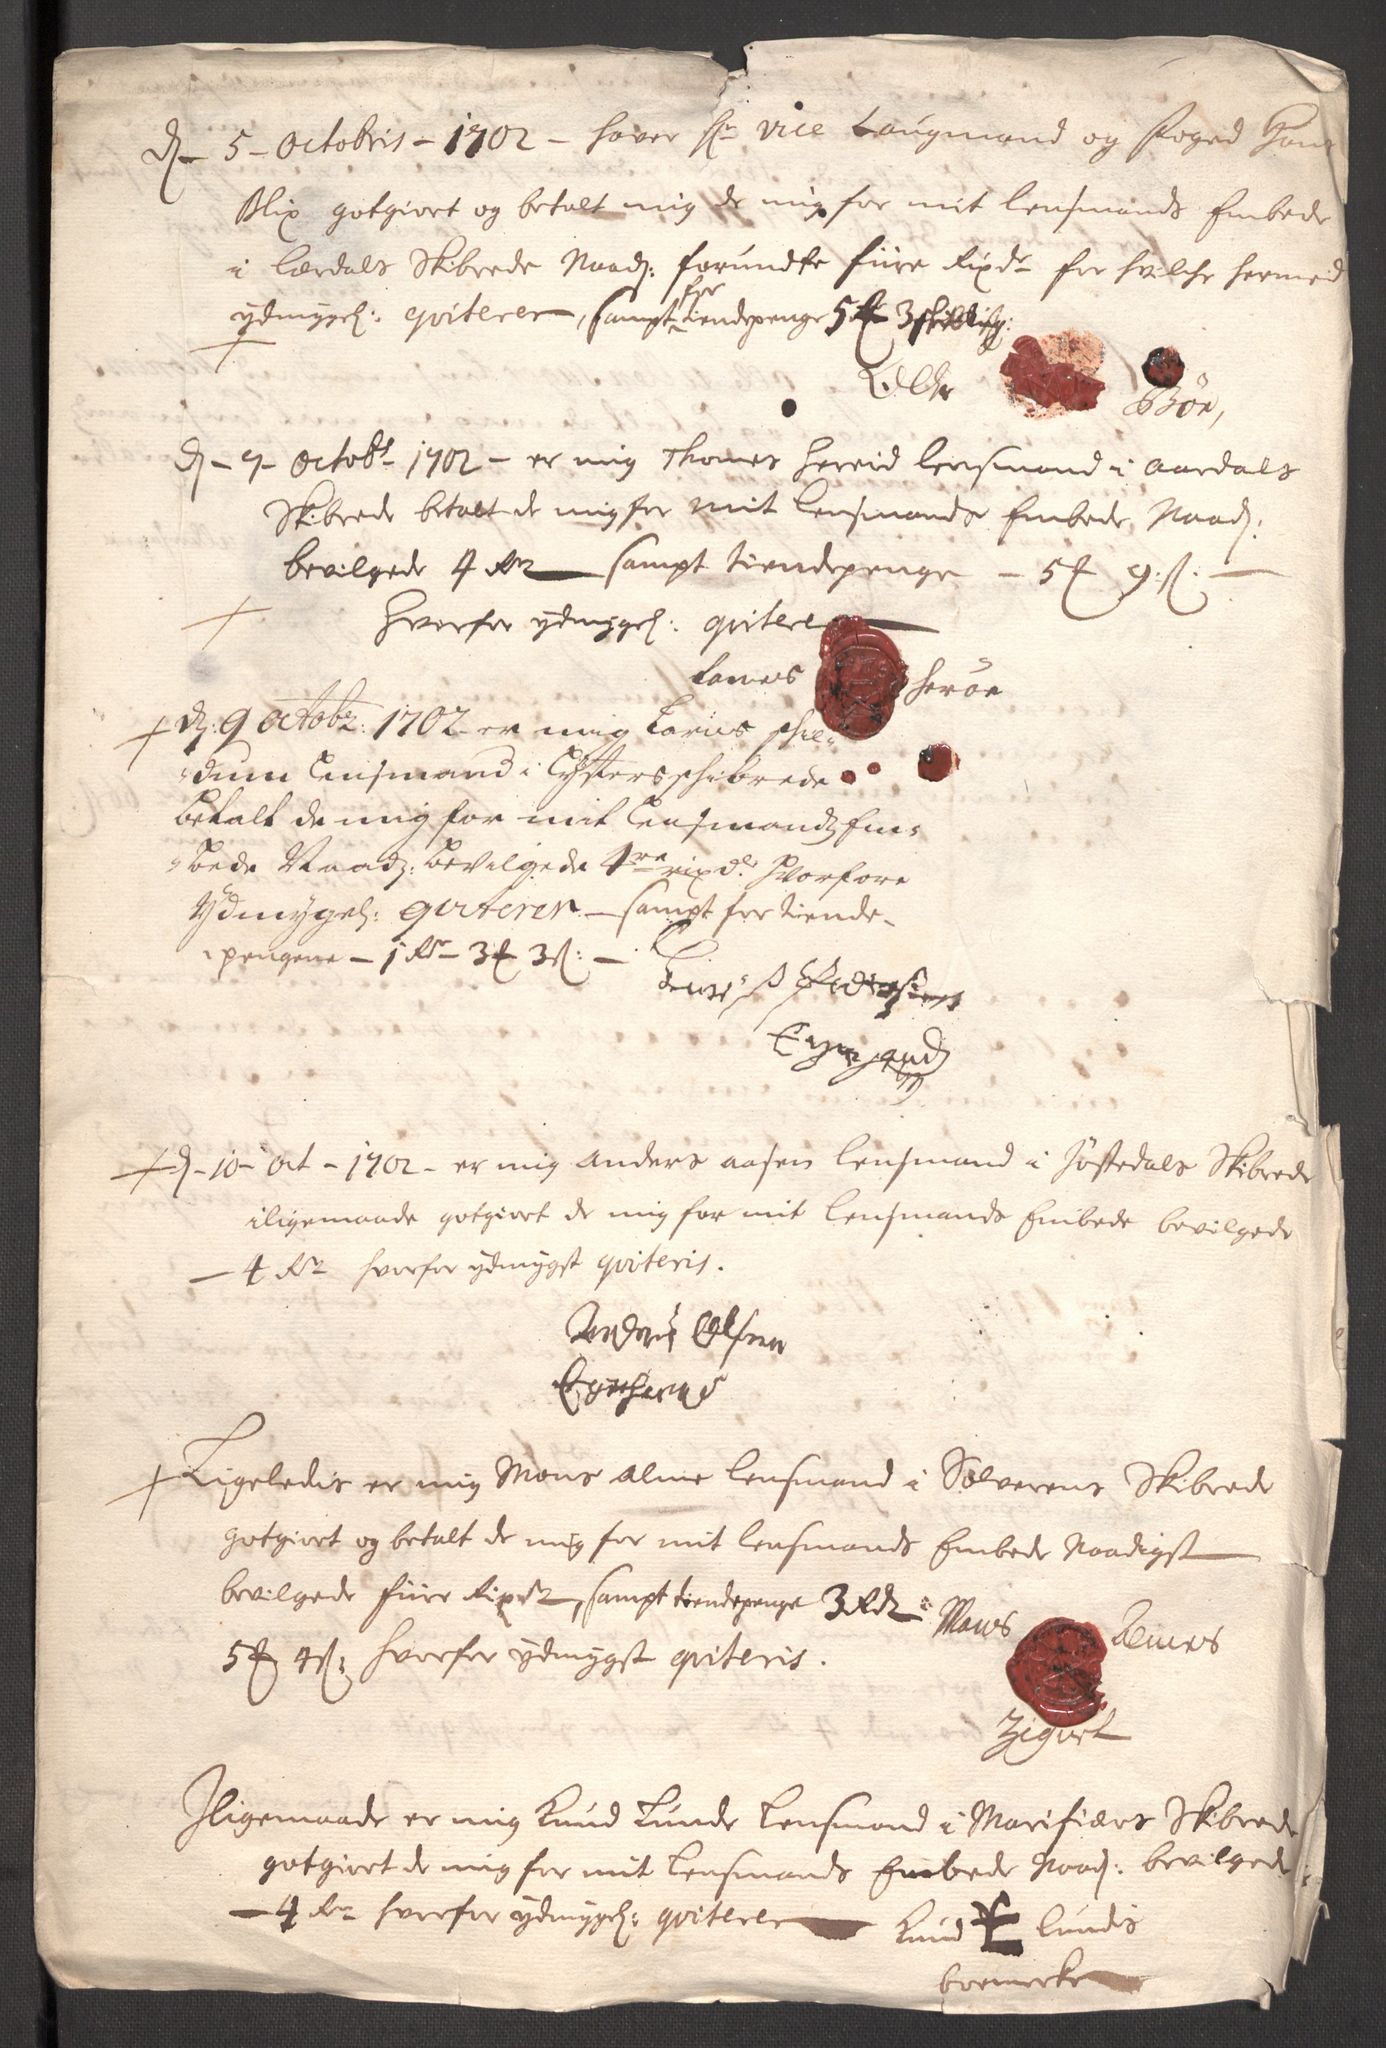 D. 5 Octobris 1702 haver Hr vice Laugmand og Foged Hans
Blix gotgiort og betalt mig de mig for mit Lensmands Embede
i Lærdals Skibrede Naad: forundte fiire Rixdr for hvilche hermed
ydmygel: qviterer, sampt for tiendepenge 5 3 skilling:
Böe,
D. 9 Octobr 1702 er mig Thomes Hereid Lensmand i Aardals
Skibrede betalt de mig for mit Lensmands Embede Naad:
bevilgede 4 Rdr sampt tiendepenge 5 9 s:
hvorfor ydmygel: qviterer
Heröe
D: 9 Octobr: 1702 er mig Larus
dum Lensmand i Lysters schibrede
Betalt de mig for mit Lensmandz Em-
bede Naad: bevilgede 4re rixdr hvorfore
Ydmygel: qviterer sampt for tiende-
pengene 1 Rdr 3 3 s:
D. 10 Oct 1702 er mig Anders Aasen Lensmand i Jöstedals Skibrede
iligemaade gotgiort de mig for mit Lensmands Embede bevilgede
4 Rdr hvorfor ydmygst qviteris.
Ligeledis er mig Mons Alme Lensmand i Sølverens Skibrede
gotgiort og betalt de mig for mit Lensmands Embede Naadigst
bevilgede fiire Rixdr, sampt tiendepenge 3 Rdr Mons
5 4 s: hvorfor ydmygst qviteris.
Iligemaade er mig Knud Lunde Lensmand i Marifiærs Skibrede
gotgiort de mig for mit Lensmands Embede Naad: bevilgede
4 Rdr hvorfor ydmygel: qviterer Knud Lundis
boemerke